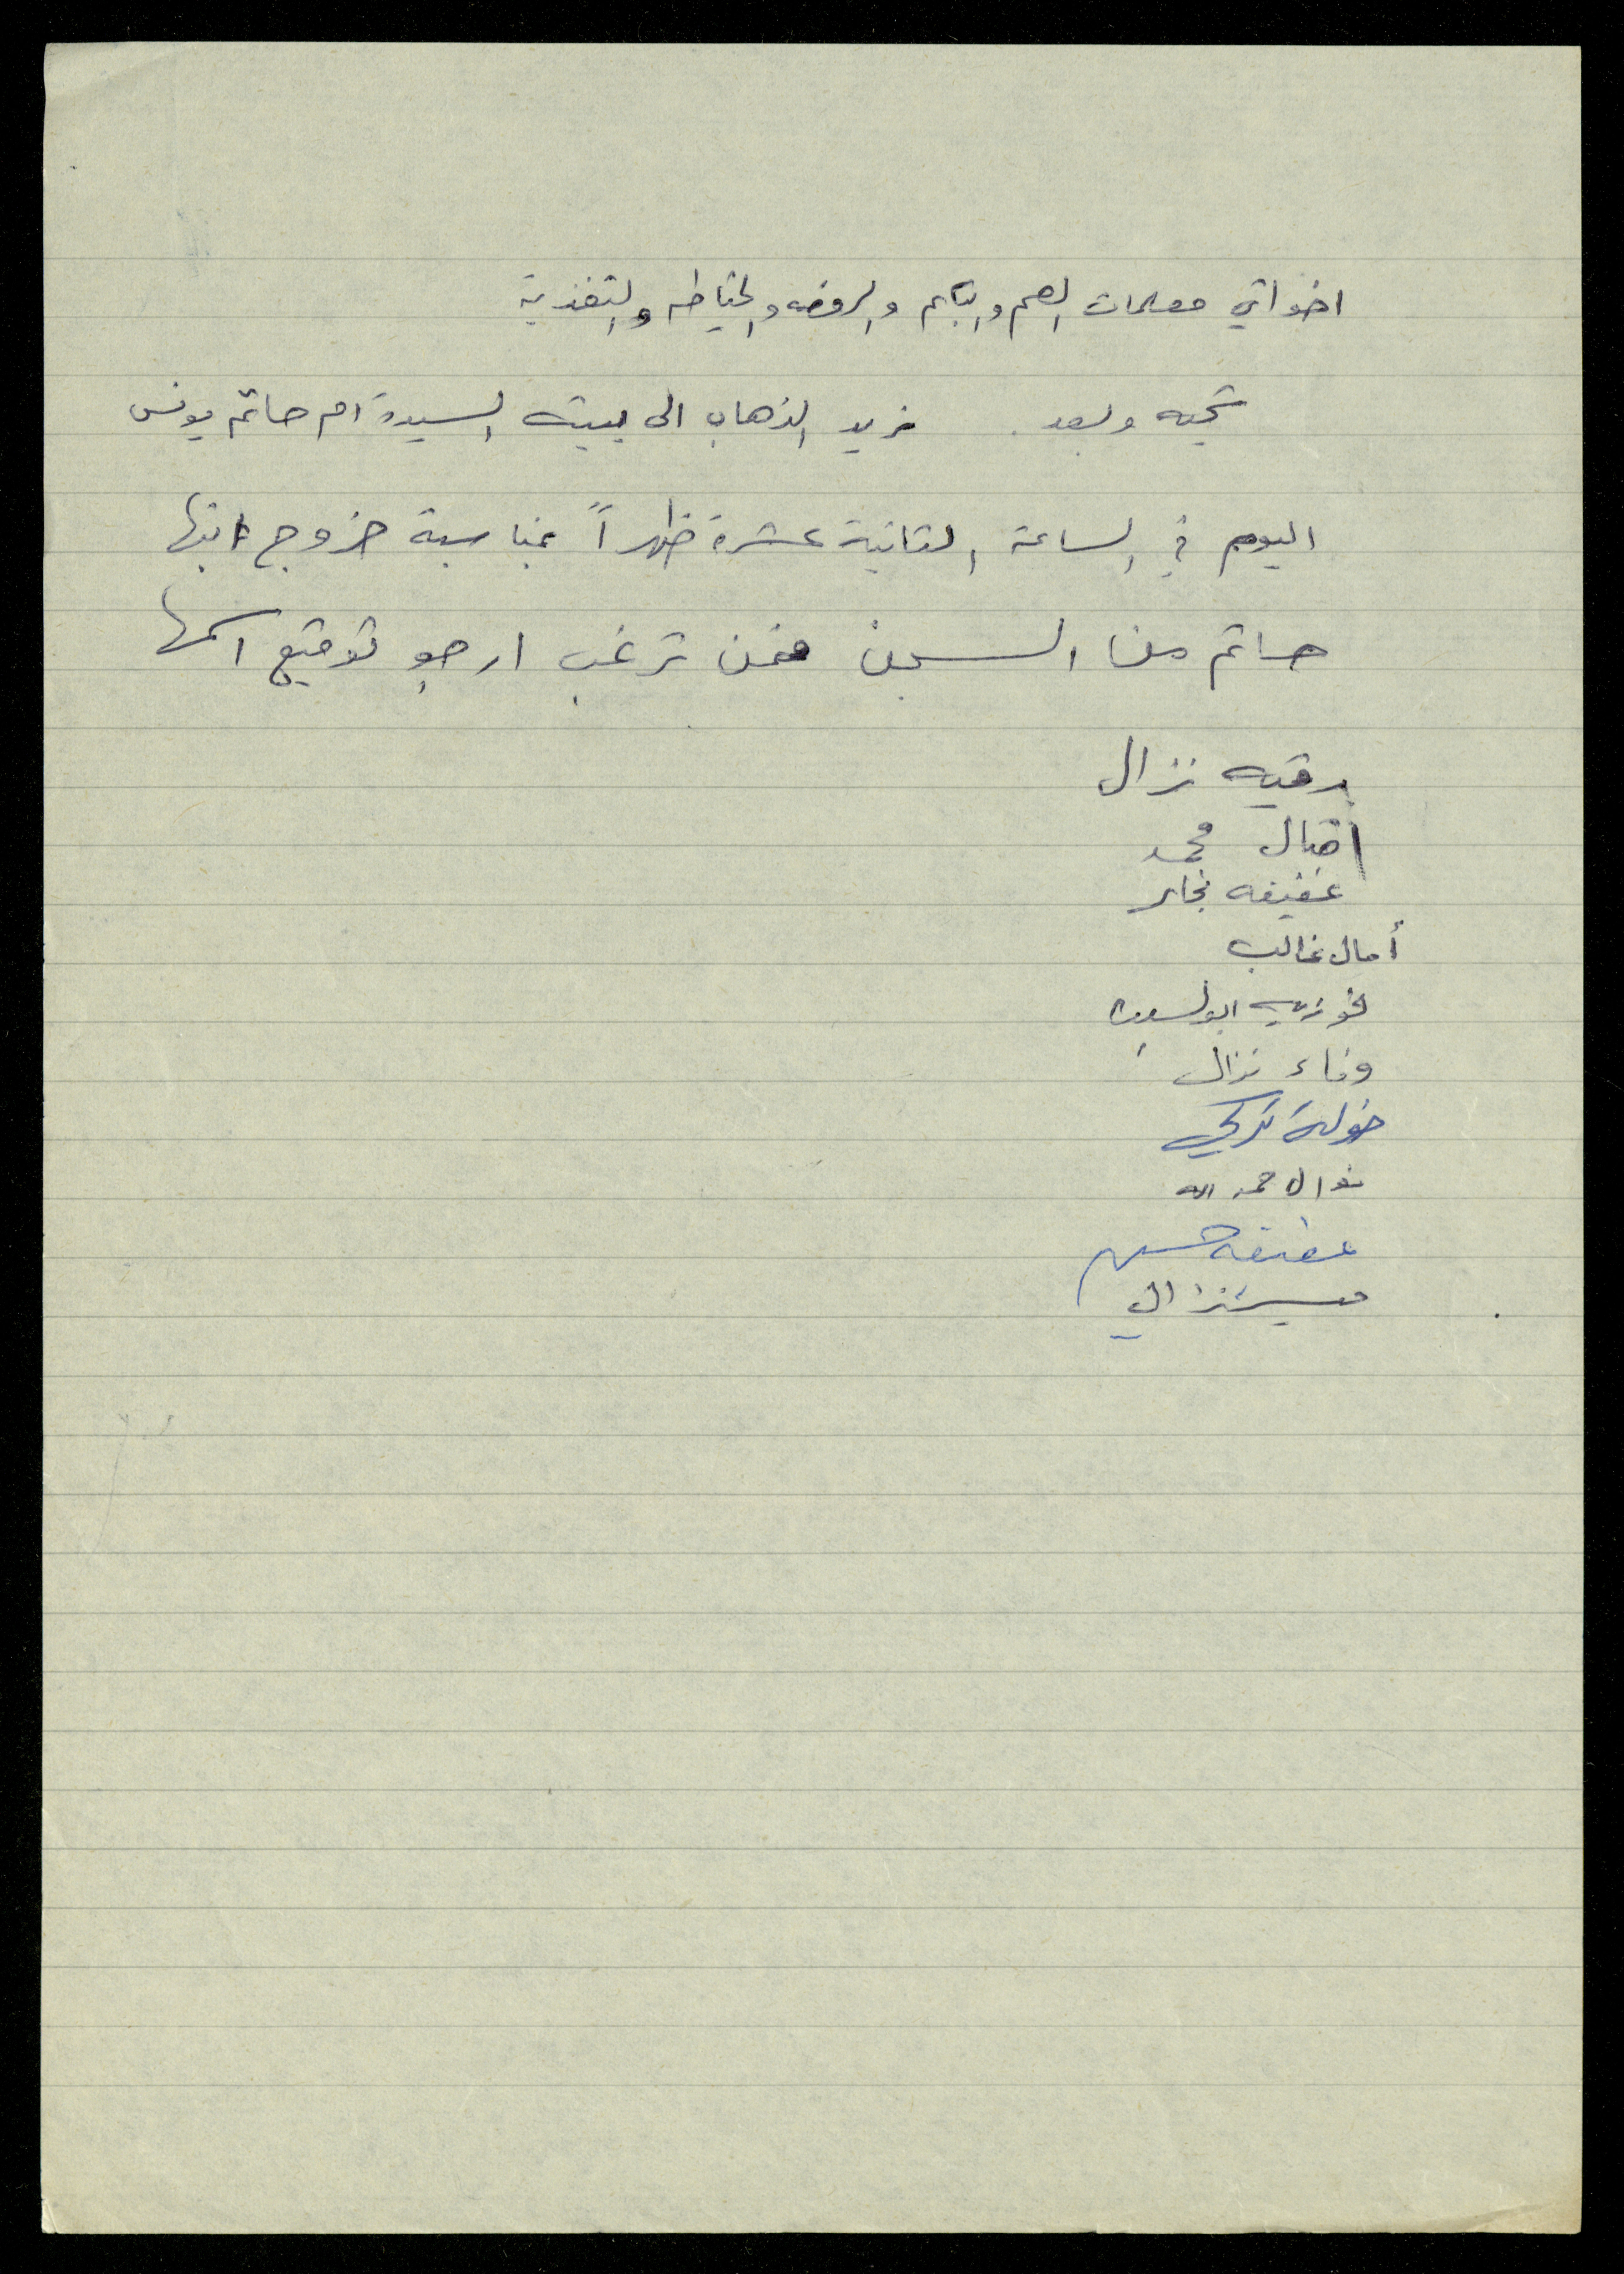 اخواتي معلمات الصم والبكم والروضه والخياطه والتغذية
تحيه وبعد. نريد الذهاب الى بيت السيدة ام حاتم يونس
اليوم في الساعة الثانية عشرة ظهراً بمناسبة خروج ابنها
حاتم من السجن فمن ترغب ارجو توقيع اسمها
رقيه نزال
اقبال محمد
عفيفه نجار
أمال غالب
فوزيه ابو
وفاء نزال
خولة تركي
نوال حمد الله
عفيفه حسين
ميسر نزال